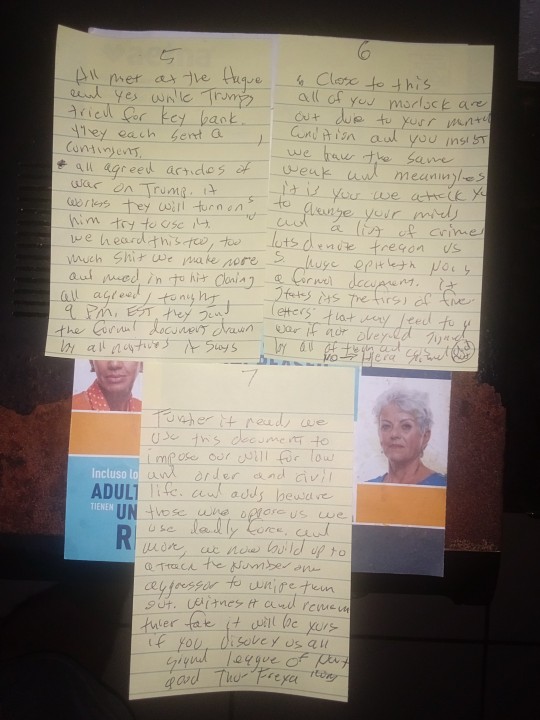 5
All met at the Hague
and yes while Trump
tried for key bank.
they each sent a
contingent,
all agreed articles of
war on Trump. it
worless they will turn on
him try to use it
we heard this too, too
much shit we make more
and need in to hit cloning
all agreed, tonight
9 P.M. EST they send
the formal document drawn
by all natives it says
6
Close to this
all of you morlock are
out due to your mental
condition and you insist
we have the same
weak and meaningles
it is you we attack
to change your minds
and a list of crimes
lots denote treason us
huge epitteth
a formal document. it
states its the first of five
letters that may leed to
war if not obeyed signed
by all of them and
Hera signed
7
Further it reads we
use this document to
impose our will for law
and order and civil
life. and adds beware
those who oppose us we
use deadly force, and
more, we now build up to
attack the number one
aggressor to whipe them
out. Witness it and remem
thier fate it will be yours
if you disobey us all
signed league of
Thor Freya
Incluso lo
ADULT
TIENEN UN
R